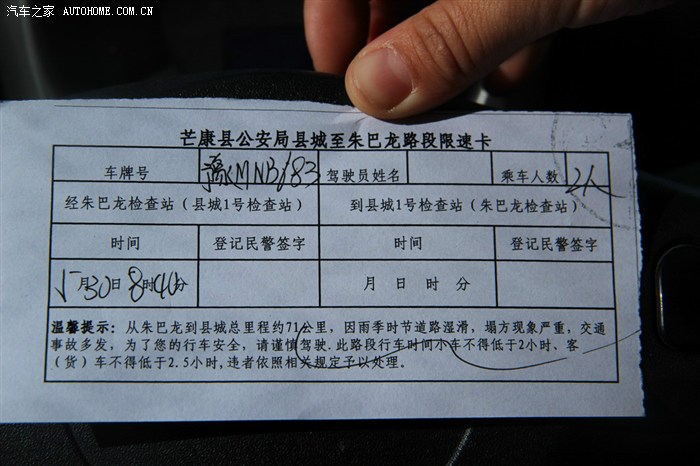 汽车之家 AUTOHOME.COM.CN
芒康县公安局县城至朱巴龙路段限速卡
车牌号 豫MNB183 驾驶员姓名 乘车人数 2人
经朱巴龙检查站（县城1号检查站） 到县城1号检查站（朱巴龙检查站）
时间 登记民警签字 时间 登记民警签字
5月30日8时40分 月 日 时 分
温馨提示：从朱巴龙到县城总里程约71公里，因雨季时节道路湿滑，塌方现象严重，交通
事故多发，为了您的行车安全，请谨慎驾驶.此路段行车时间小车不得低于2小时、客
（货）车不得低于2.5小时,违者依照相关规定予以处理。